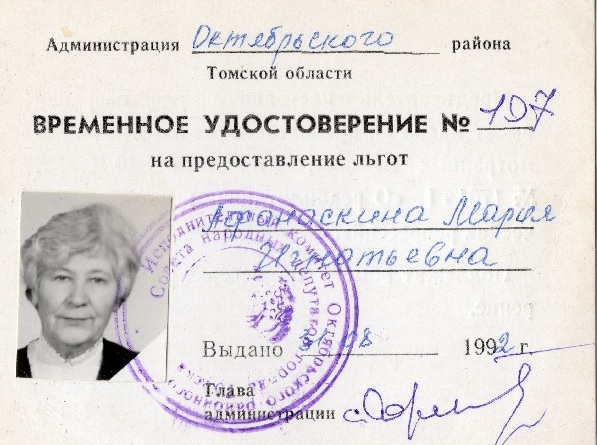 Администрация Октябрьского района
Томской области
ВРЕМЕННОЕ УДОСТОВЕРЕНИЕ № 107
на предоставление льгот
Афанаскина Мария
Игнатьевна
Исполнительный комитет Октябрьского районного
Совета народных депутатов
Выдано 08 1992 г.
Глава
администрации